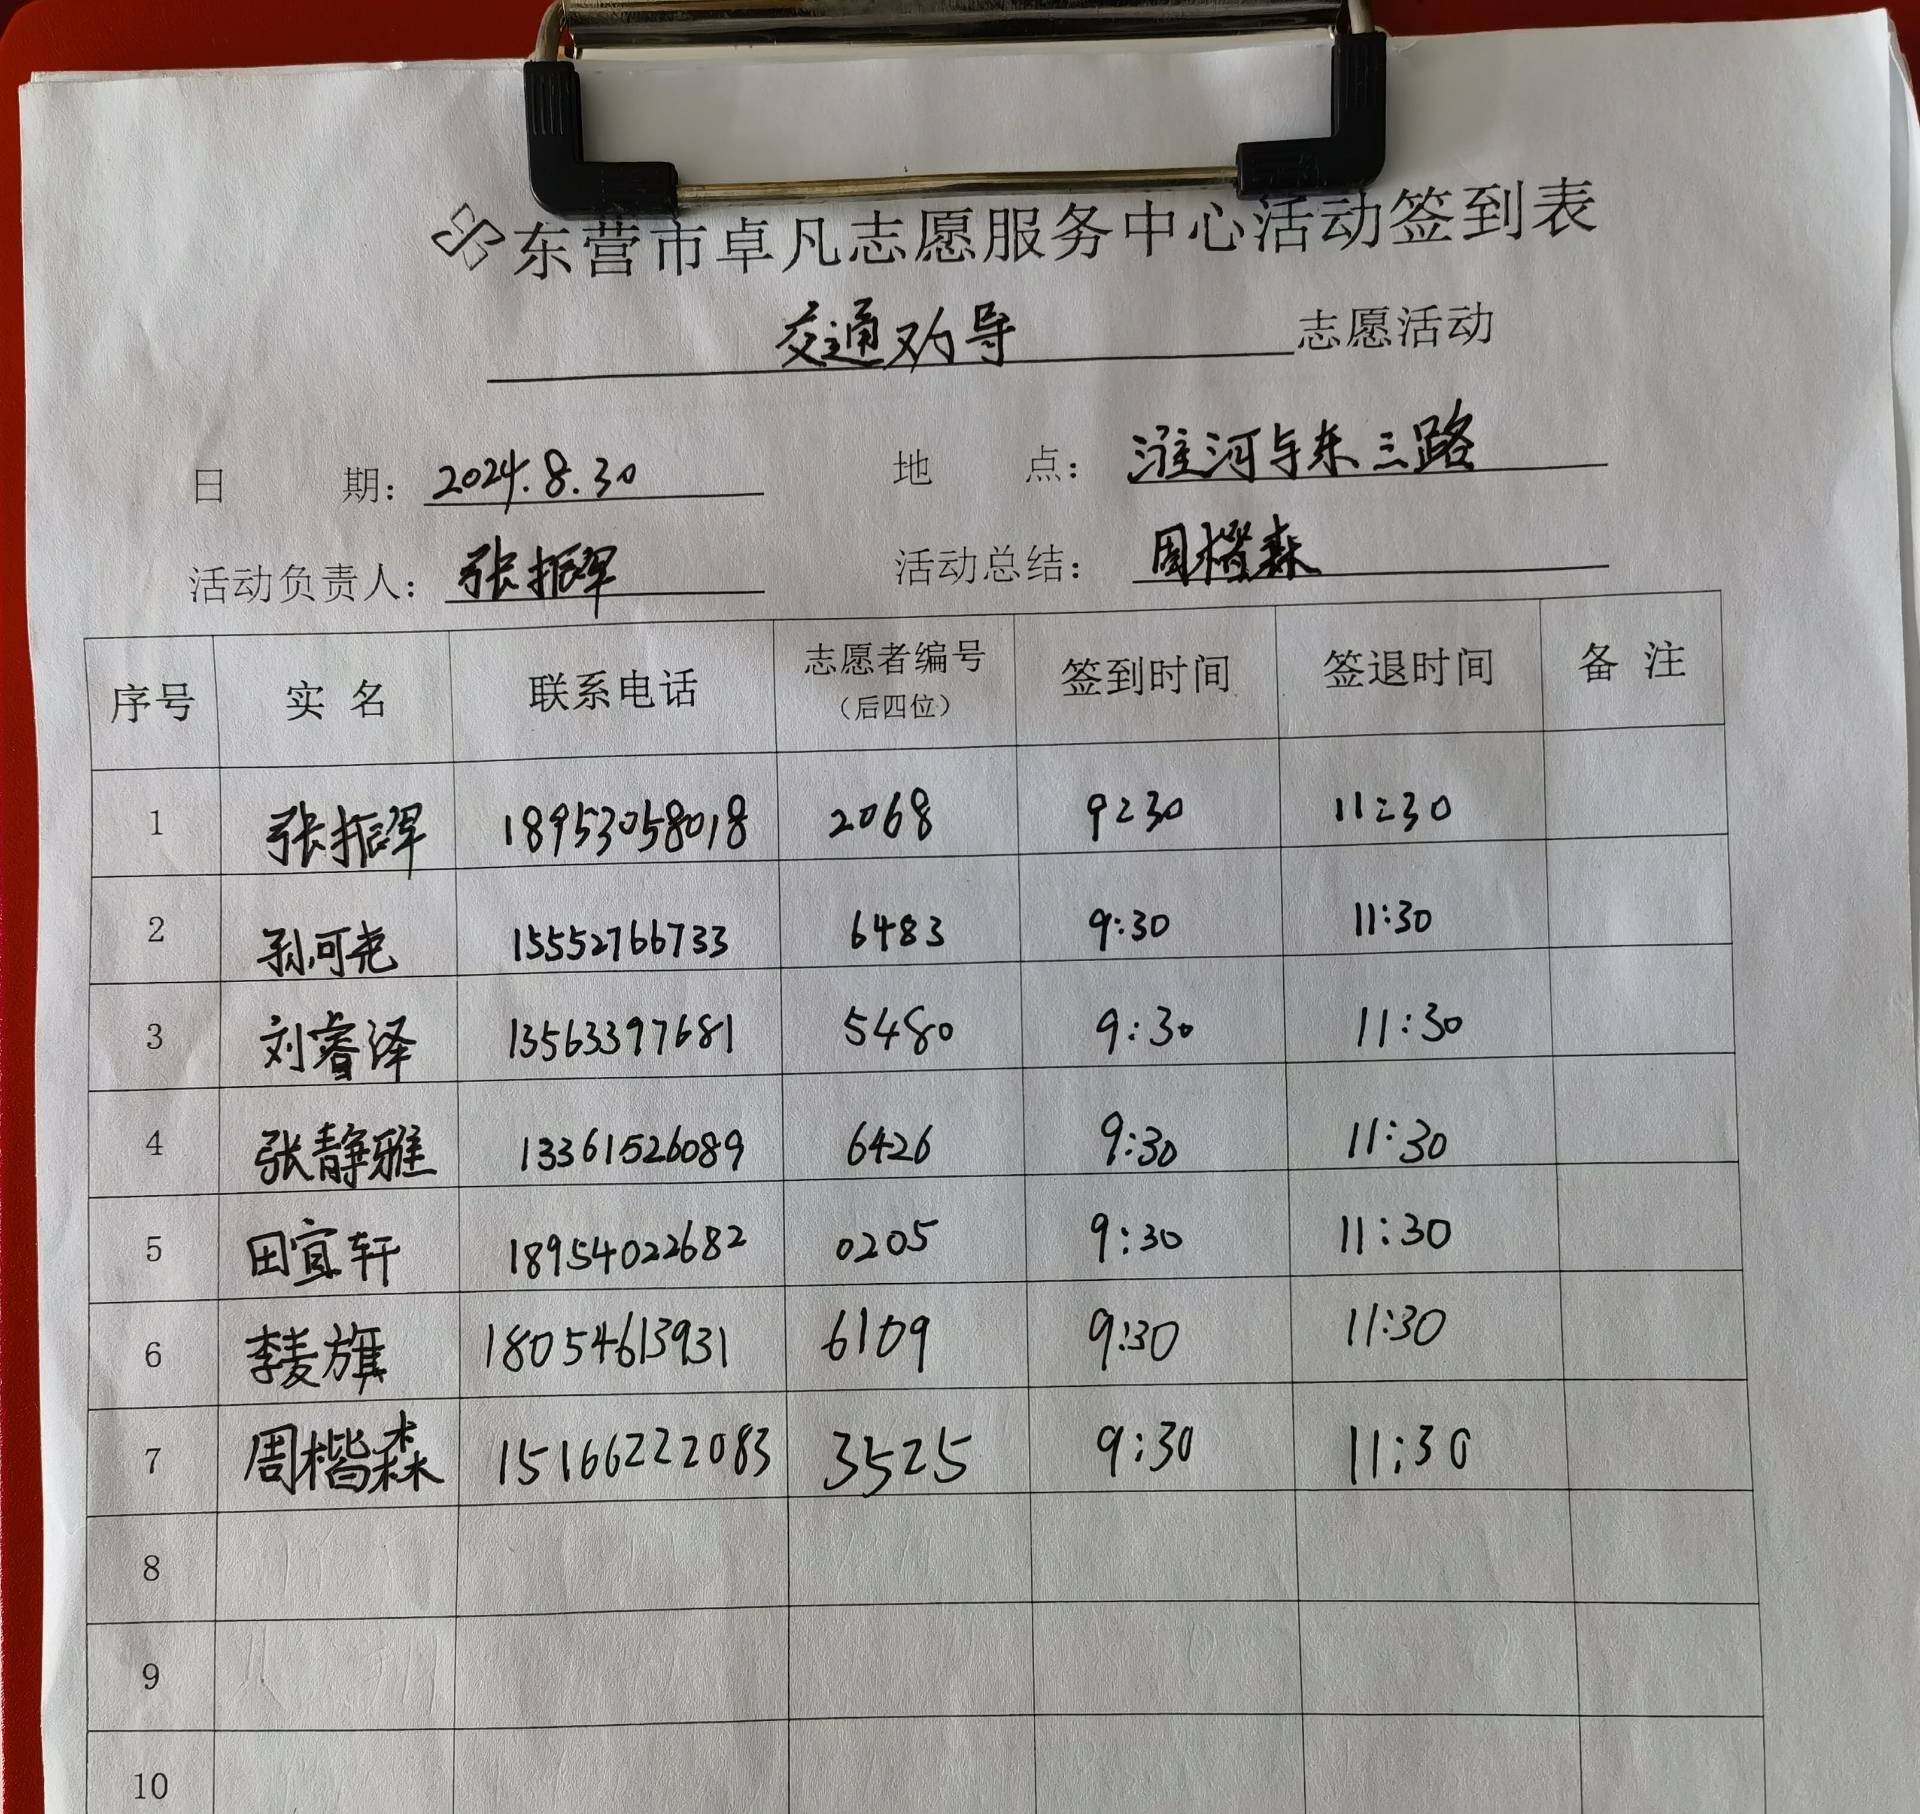 东营市卓凡志愿服务中心活动签到表
交通劝导 志愿活动
日 期: 2024.8.30 地 点: 淮河与东三路
活动负责人: 张振军 活动总结: 周楷森
序号 实 名 联系电话 志愿者编号（后四位） 签到时间 签退时间 备 注
1 张振军 18953058018 2068 9:30 11:30
2 孙可尧 15552766733 6483 9:30 11:30
3 刘睿泽 13563397681 5480 9:30 11:30
4 张静雅 13361526089 6426 9:30 11:30
5 田宜轩 18954022682 0205 9:30 11:30
6 李麦旗 18054613931 6109 9:30 11:30
7 周楷森 15166222083 3525 9:30 11:30
8
9
10